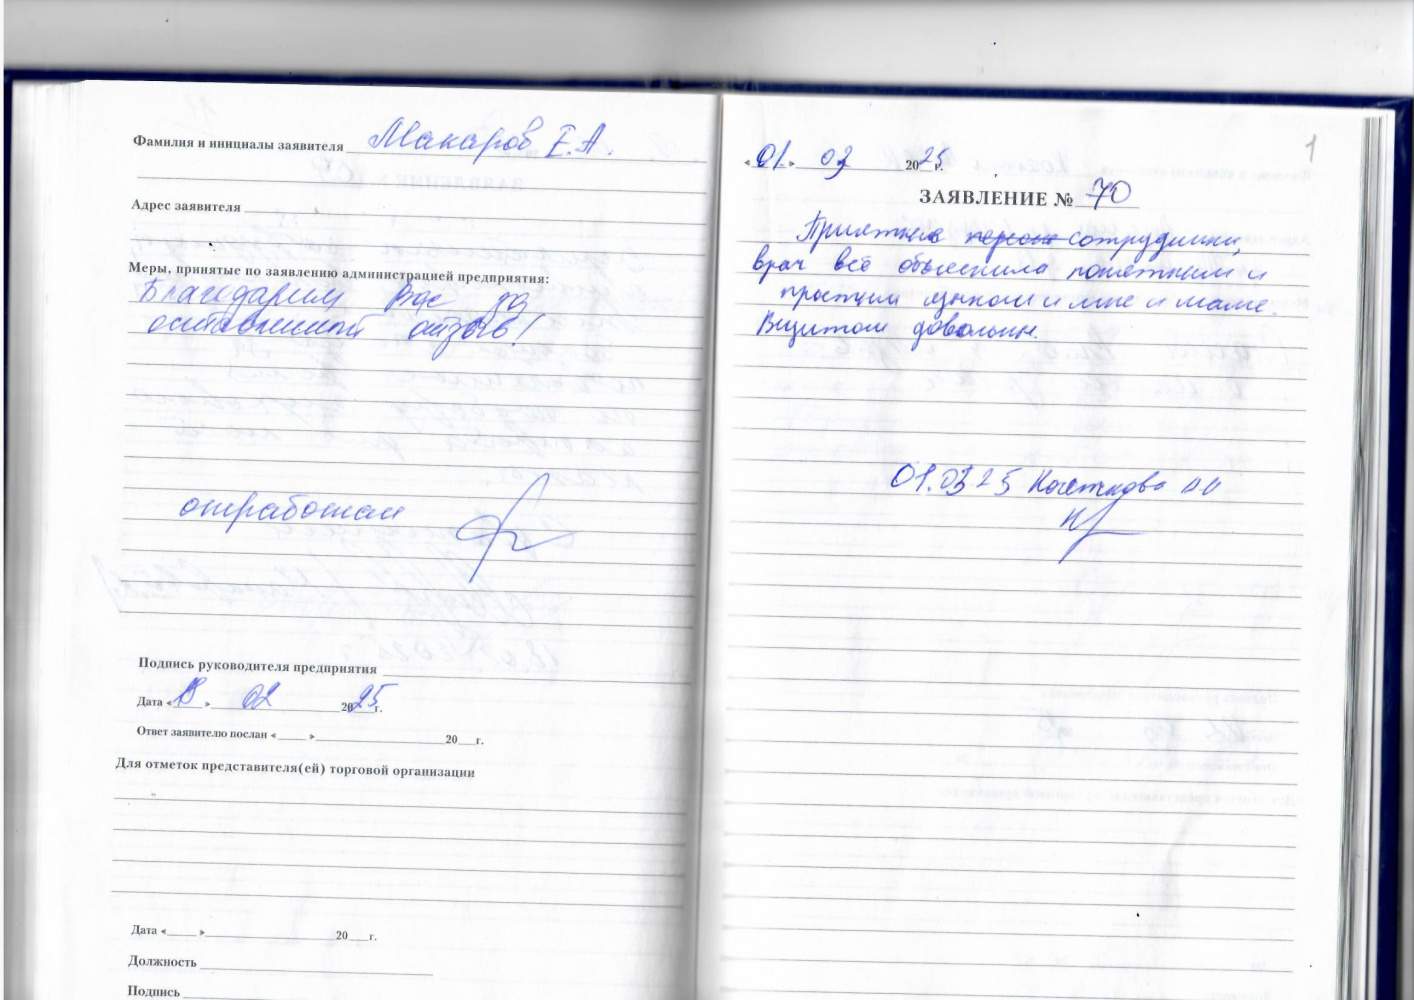 Фамилия и инициалы заявителя Макаров Е.А.
Адрес заявителя
Меры, принятые по заявлению администрацией предприятия:
Благодарим Вас за
оставленный отзыв!
отработан
Подпись руководителя предприятия
Дата «18» 02 2025 г.
Ответ заявителю послан « » 20 г.
Для отметок представителя(ей) торговой организации
Дата « » 20 г.
Должность
Подпись
1
«01» 03 2025 г.
ЗАЯВЛЕНИЕ № 70
Приятные сотрудники,
врач всё объяснила понятным и
простым языком и мне и маме.
Визитом довольны.
01.03.25